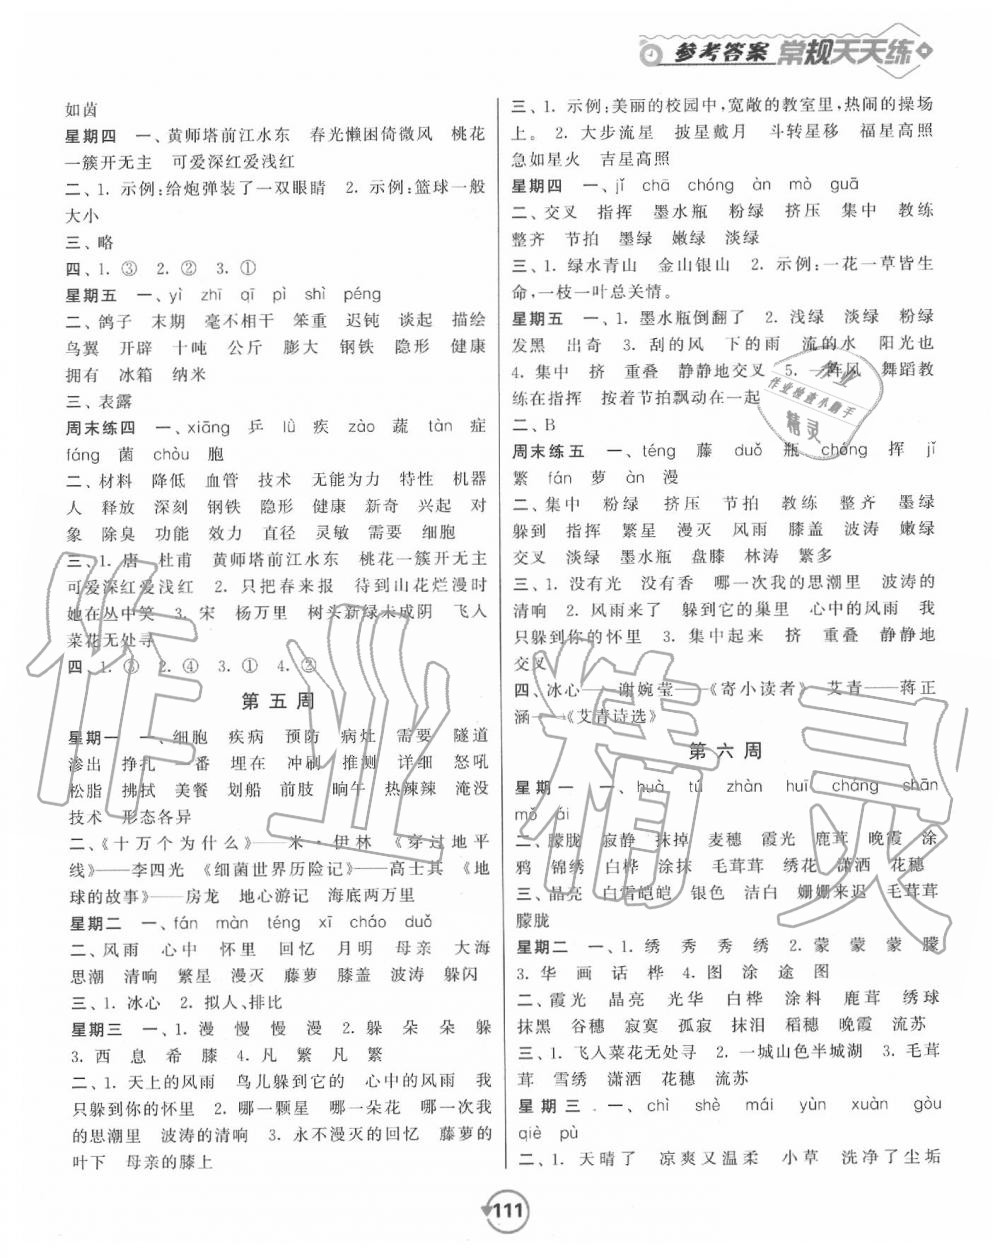 参考答案 常规天天练
如茵
星期四 一、黄师塔前江水东 春光懒困倚微风 桃花
一簇开无主 可爱深红爱浅红
二、1. 示例:给炮弹装了一双眼睛 2. 示例:篮球一般
大小
三、略
四、1. ③ 2. ② 3. ①
星期五 一、yì zhī qī pì shì péng
二、鸽子 末期 毫不相干 笨重 迟钝 谈起 描绘
鸟翼 开辟 十吨 公斤 膨大 钢铁 隐形 健康
拥有 冰箱 纳米
三、表露
周末练四 一、xiāng 乒 lǜ 疾 zào 蔬 tàn 症
fáng 菌 chòu 胞
二、材料 降低 血管 技术 无能为力 需要 机器
人 释放 深刻 钢铁 隐形 健康 新奇 兴起 对
象 除臭 功能 效力 直径 灵敏 需要 细胞
三、1. 唐 杜甫 黄师塔前江水东 桃花一簇开无主
可爱深红爱浅红 2. 只把春来报 待到山花烂漫时
她在丛中笑 3. 宋 杨万里 树头新绿未成阴 飞入
菜花无处寻
四、1. ③ 2. ④ 3. ① 4. ②
第五周
星期一 一、细胞 疾病 预防 病灶 需要 隧道
渗出 挣扎 一番 埋在 冲刷 推测 详细 怒吼
松脂 拂拭 美餐 划船 前肢 晌午 热辣辣 淹没
技术 形态各异
二、《十万个为什么》——米·伊林 《穿过地平
线》——李四光 《细菌世界历险记》——高士其 《地
球的故事》——房龙 地心游记 海底两万里
星期二 一、fán màn téng xī cháo duǒ
二、风雨 心中 怀里 回忆 月明 母亲 大海
思潮 清响 繁星 漫灭 藤萝 膝盖 波涛 躲闪
三、1. 冰心 2. 拟人、排比
星期三 一、1. 漫 慢 慢 漫 2. 躲 朵 朵 躲
3. 西 息 希 膝 4. 凡 繁 凡 繁
二、1. 天上的风雨 鸟儿躲到它的 心中的风雨 我
只躲到你的怀里 2. 哪一颗星 哪一朵花 哪一次我
的思潮里 波涛的清响 3. 永不漫灭的回忆 藤萝的
叶下 母亲的膝上
三、1. 示例:美丽的校园中,宽敞的教室里,热闹的操场
上。 2. 大步流星 披星戴月 斗转星移 福星高照
急如星火 吉星高照
星期四 一、jǐ chā chóng àn mò guā
二、交叉 指挥 墨水瓶 粉绿 挤压 集中 教练
整齐 节拍 墨绿 嫩绿 淡绿
三、1. 绿水青山 金山银山 2. 示例:一花一草皆生
命,一枝一叶总关情。
星期五 一、1. 墨水瓶倒翻了 2. 浅绿 淡绿 粉绿
发黑 出奇 3. 刮的风 下的雨 流的水 阳光也
4. 集中 挤 重叠 静静地交叉 5. 一阵风 舞蹈教
练在指挥 按着节拍飘动在一起
二、B
周末练五 一、téng 藤 duǒ 瓶 chóng 挥 jǐ
繁 fán 萝 àn 漫
二、集中 粉绿 挤压 节拍 教练 整齐 墨绿
躲到 指挥 繁星 漫灭 风雨 膝盖 波涛 嫩绿
交叉 淡绿 墨水瓶 盘膝 林涛 繁多
三、1. 没有光 没有香 哪一次我的思潮里 波涛的
清响 2. 风雨来了 躲到它的巢里 心中的风雨 我
只躲到你的怀里 3. 集中起来 挤 重叠 静静地
交叉
四、冰心——谢婉莹——《寄小读者》 艾青——蒋正
涵——《艾青诗选》
第六周
星期一 一、huà tú zhàn huī cháng shān
mǒ ái
二、朦胧 寂静 抹掉 麦穗 霞光 鹿茸 晚霞 涂
鸦 锦绣 白桦 涂抹 毛茸茸 绣花 潇洒 花穗
三、晶亮 白雪皑皑 银色 洁白 姗姗来迟 毛茸茸
朦胧
星期二 一、1. 绣 秀 秀 绣 2. 蒙 蒙 蒙 朦
3. 华 画 话 桦 4. 图 涂 途 图
二、霞光 晶亮 光华 白桦 涂料 鹿茸 绣球
抹黑 谷穗 寂寞 孤寂 抹泪 稻穗 晚霞 流苏
三、1. 飞入菜花无处寻 2. 一城山色半城湖 3. 毛茸
茸 雪绣 潇洒 花穗 流苏
星期三 一、chì shè mái yùn xuàn gòu
qiè pù
二、1. 天晴了 凉爽又温柔 小草 洗净了尘垢
111
作业精灵
作业
作业检查小助手
精灵